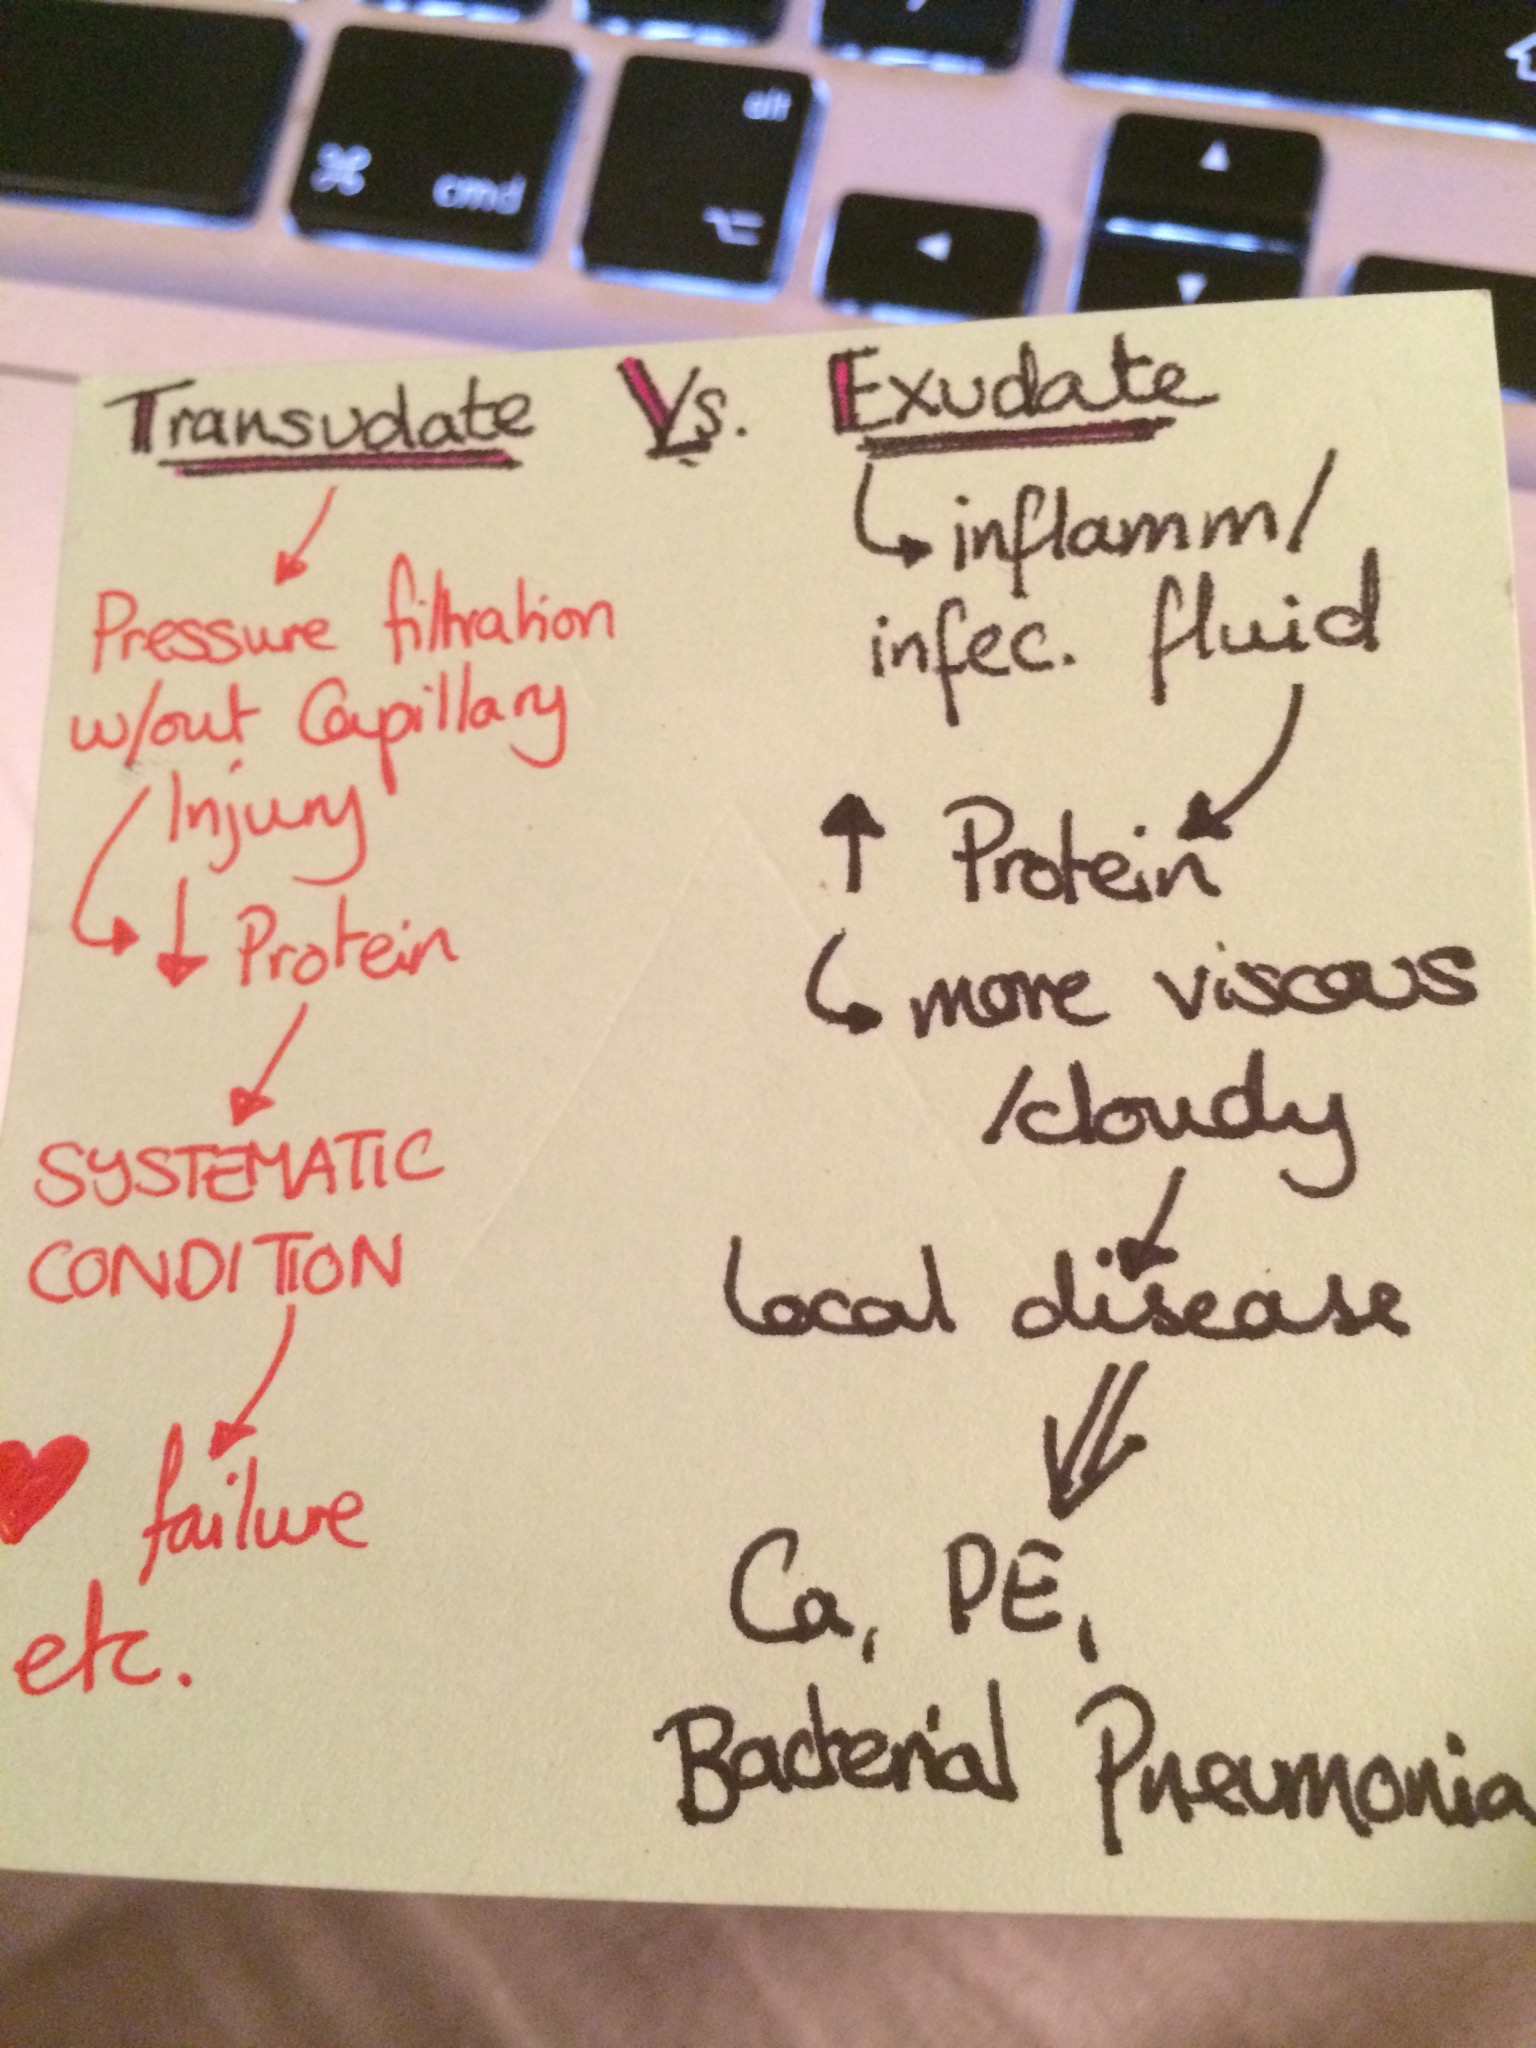 alt
⌘ cmd
⌥
◄
▲
▼
Transudate Vs. Exudate
Pressure filtration
w/out Capillary
Injury
↓ Protein
SYSTEMATIC
CONDITION
♥ failure
etc.
inflamm/
infec. fluid
↑ Protein
more viscous
/cloudy
Local disease
Ca, PE,
Bacterial Pneumonia